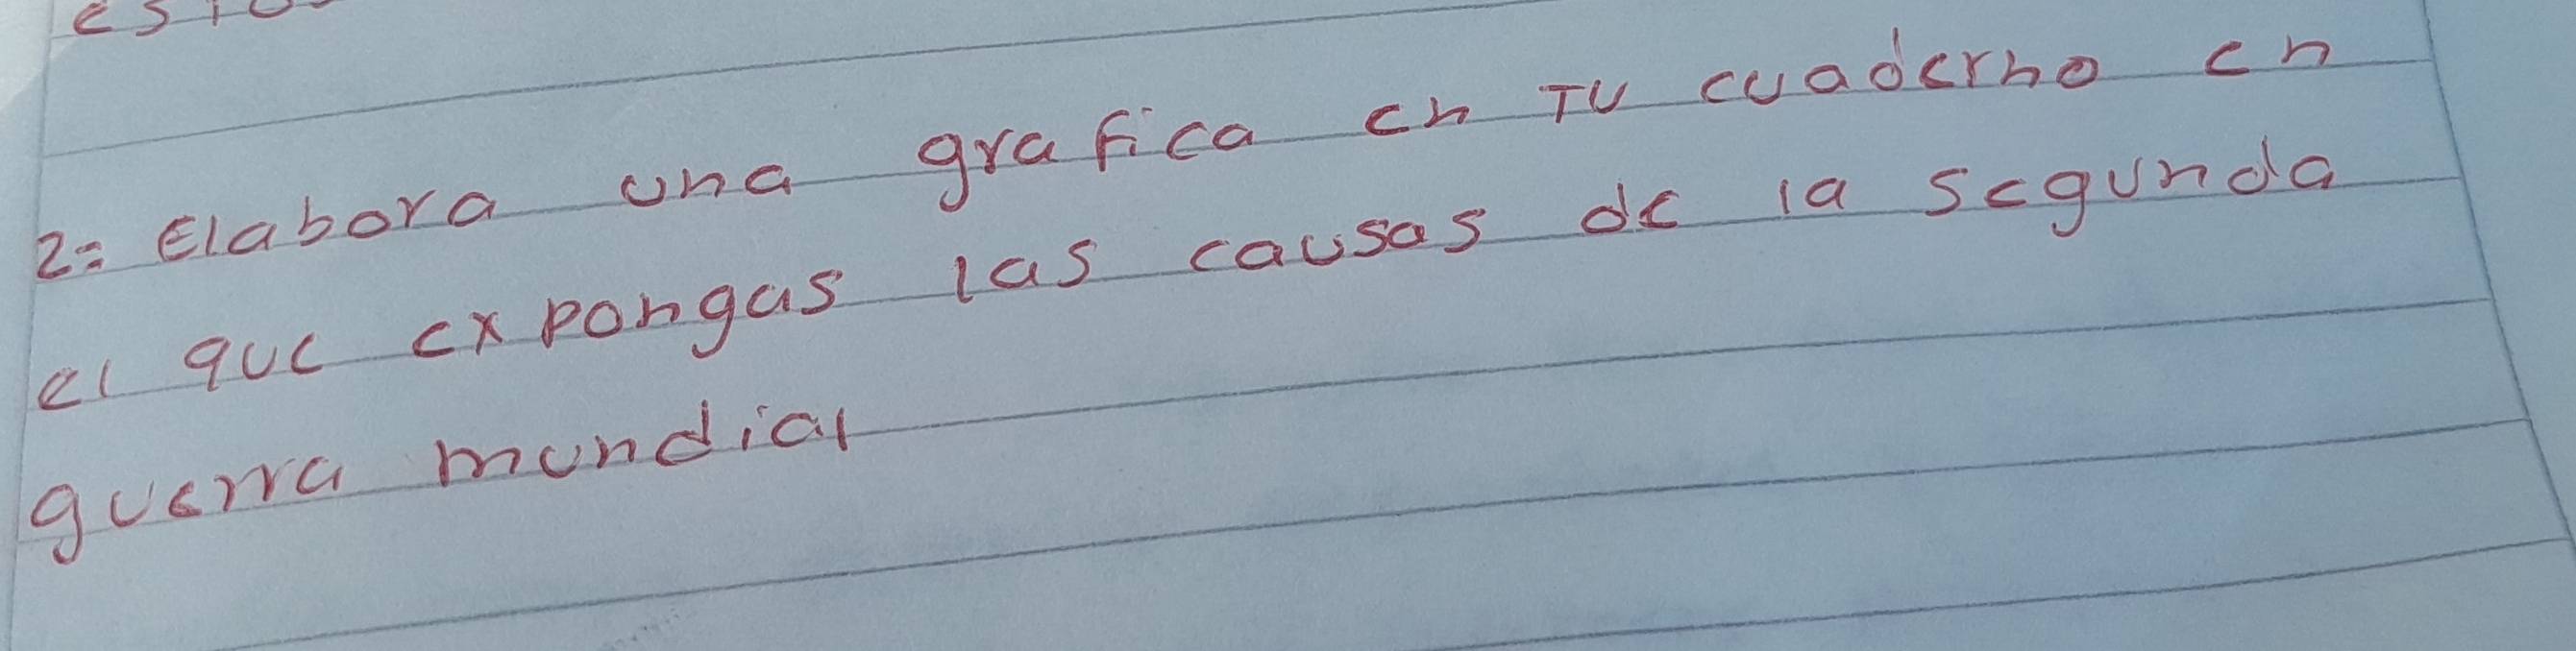 2= Elabora una grafica en TU cuaderno en
el que expongas las causas de la segunda
guerra mundial